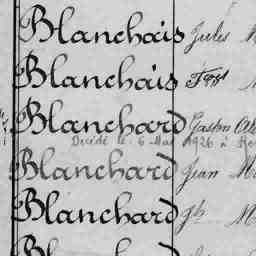 Blanchais Jules
Blanchais
Blanchard Gaston
Décédé le 6 Mai 1926 à
Blanchard Jean
Blanchard Jh